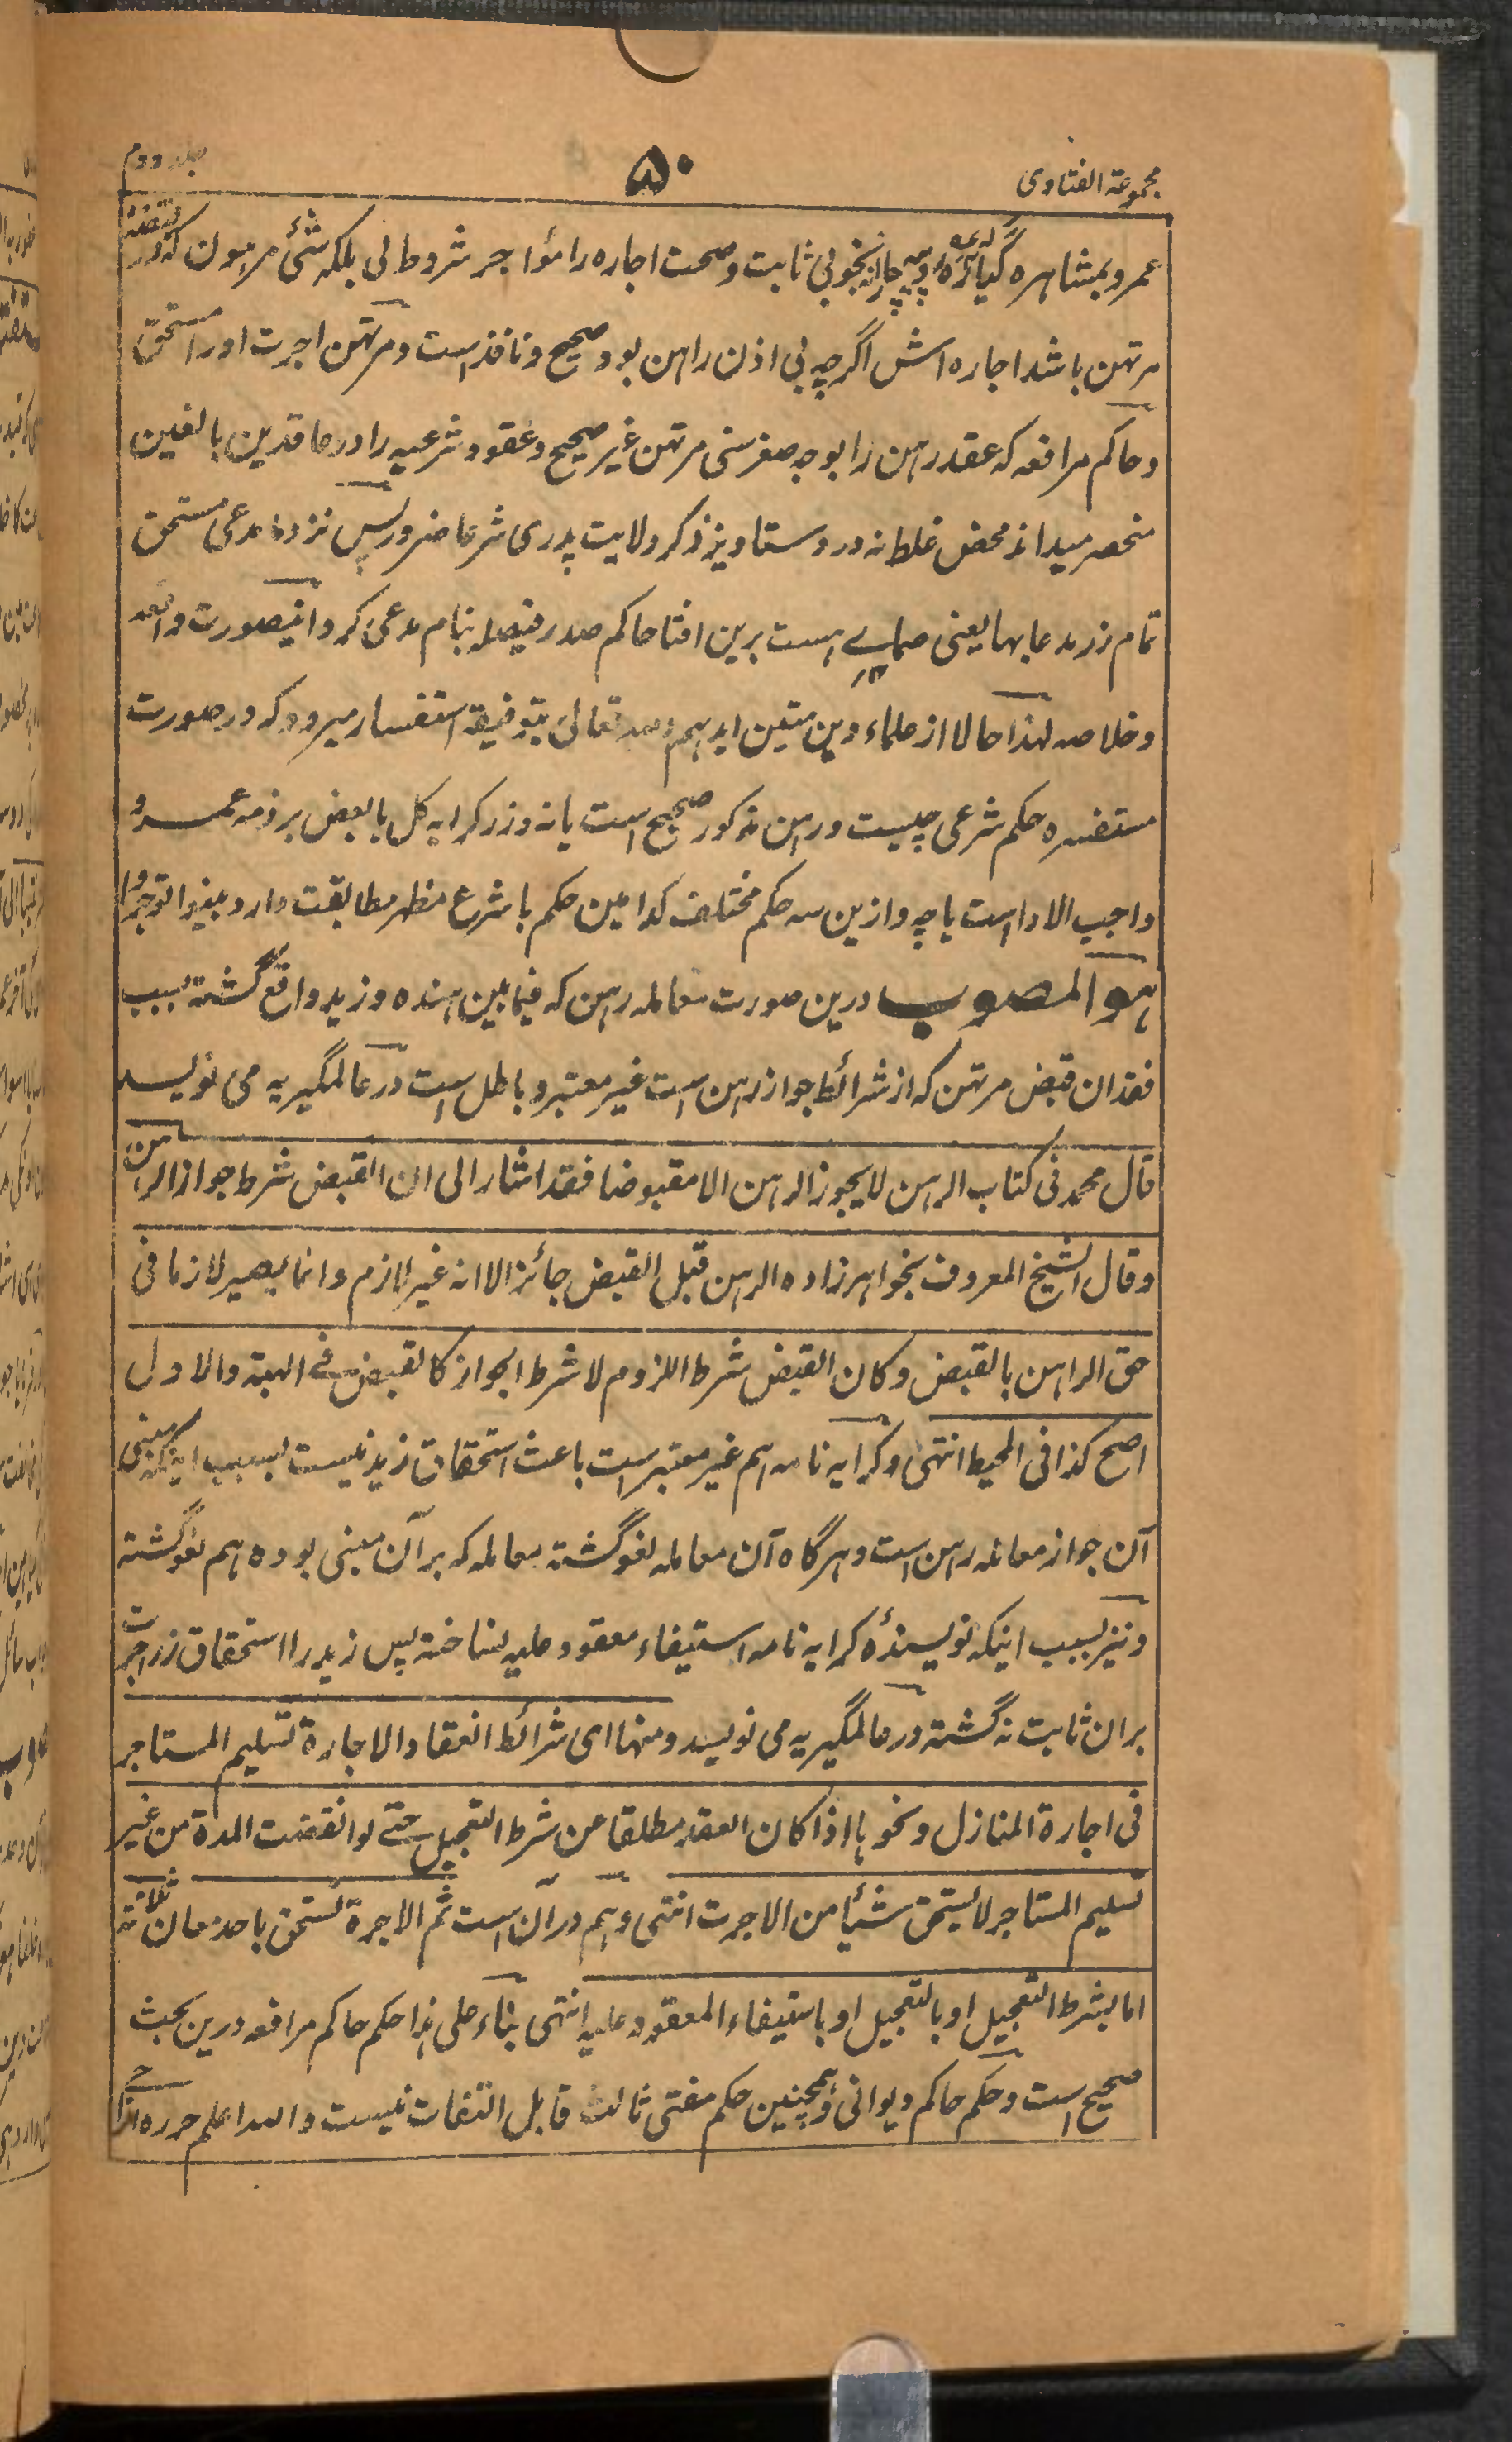 مجموعة الفتاوی
۵۰
جلد دوم
عمرو بمشاہرہ بخوبی ثابت وصحت اجارہ را مؤاجر شروط لی بلکہ شئ مرہون کہ در قبضۂ
مرتہن باشد اجارہ اش اگرچہ بی اذن راہن بود صحیح ونافذ است ومرتہن اجرت اورا مستحق
وحاکم مرافعہ کہ عقد رہن را بوجہ صغر سنی مرتہن غیر صحیح وعقود شرعیہ را در عاقدین بالغین
منحصر میداند محض غلط نہ در دستاویز ذکر ولایت پدری شرعا ضرور پس نزد ما مدعی مستحق
تمام زر مدعا بہا یعنی ہست برین افتا حاکم صدر فیصلہ بنام مدعی کرد اینصورت واقعہ
وخلاصہ لہذا حالا از علماء دین متین ایدہم اللہ تعالی بتوفیقہ استفسار میرود کہ در صورت
مستفسرہ حکم شرعی چیست ورہن مذکور صحیح است یا نہ وزر کرایہ کل یا بعض بر ذمہ عمرو
واجب الادا است یا چہ وازین سہ حکم مختلف کدامین حکم با شرع مطہر مطابقت دارد بینوا توجروا
ہو المصوب درین صورت معاملہ رہن کہ فیمابین ہندہ وزید واقع گشتہ بسبب
فقدان قبض مرتہن کہ از شرائط جواز رہن است غیر معتبر وباطل است در عالمگیریہ می نویسد
قال محمد فی کتاب الرہن لا یجوز الرہن الا مقبوضا فقد اشار الی ان القبض شرط جواز الرہن
وقال الشیخ المعروف بخواہرزادہ الرہن قبل القبض جائز الا انہ غیر لازم وانما یصیر لازما فی
حق الراہن بالقبض وکان القبض شرط اللزوم لا شرط الجواز کالقبض فی الہبة والاول
اصح کذا فی المحیط انتہی وکرایہ نامہ ہم غیر معتبر است باعث استحقاق زید نیست بسبب اینکہ مبنی
آن جواز معاملہ رہن است وہرگاہ آن معاملہ لغو گشتہ معاملہ کہ بر آن مبنی بودہ ہم لغو گشتہ
ونیز بسبب اینکہ نویسندۂ کرایہ نامہ استیفاء معقود علیہ نساختہ پس زید را استحقاق زر اجرت
بران ثابت نہ گشتہ در عالمگیریہ می نویسد ومنہا ای شرائط انعقاد الاجارة تسلیم المستاجر
فی اجارة المنازل ونحوہا اذا کان العقد مطلقا عن شرط التعجیل حتے لو انقضت المدة من غیر
تسلیم المستاجر لا یستحق شیأ من الاجرت انتہی وہم درآن است ثم الاجرة تستحق باحد معان ثلاثة
اما بشرط التعجیل او بالتعجیل او باستیفاء المعقود علیہ انتہی بناء علی ہذا حکم حاکم مرافعہ درین بحث
صحیح است وحکم حاکم دیوانی وہمچنین حکم مفتی ثالث قابل التفات نیست واللہ اعلم حررہ الراجی